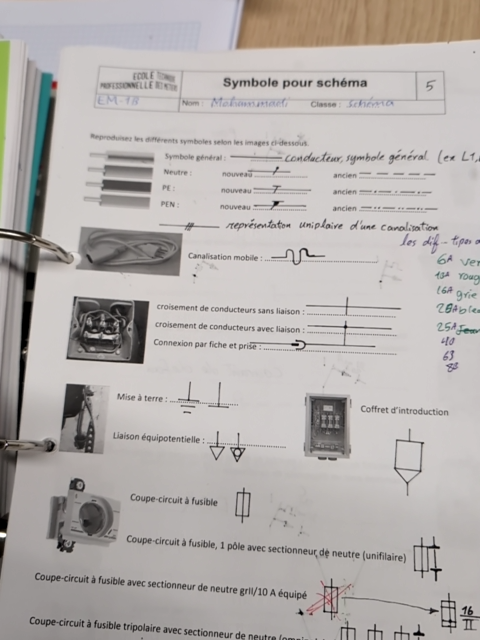 ECOLE TECHNIQUE
PROFESSIONNELLE DES METIERS
Symbole pour schéma
5
EM-1B
Nom : Mohammadi Classe : Schéma
Reproduisez les différents symboles selon les images ci-dessous.
Symbole général : conducteur, symbole général (ex L1,
Neutre : nouveau ancien
PE : nouveau ancien
PEN : nouveau ancien
représentation unipolaire d'une canalisation
les dif - types
6A ver
Canalisation mobile :
10A roug
16A grie
20A bleu
25A
40
63
80
croisement de conducteurs sans liaison :
croisement de conducteurs avec liaison :
Connexion par fiche et prise :
Mise à terre :
Coffret d'introduction
Liaison équipotentielle :
Coupe-circuit à fusible
Coupe-circuit à fusible, 1 pôle avec sectionneur de neutre (unifilaire)
Coupe-circuit à fusible avec sectionneur de neutre grII/10 A équipé
16
II
Coupe-circuit à fusible tripolaire avec sectionneur de neutre